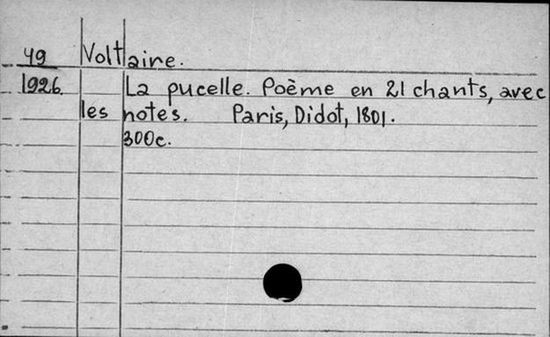 49 Voltaire.
1926. La pucelle. Poème en 21 chants, avec
les notes. Paris, Didot, 1801.
300c.